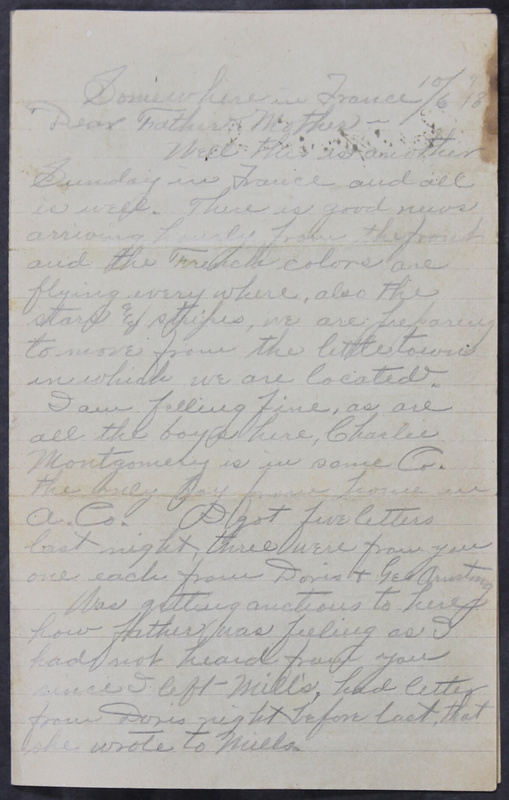 Somewhere in France 10/6 18
Dear Father & Mother —
Well this is another
Sunday in France and all
is well. There is good news
arriving hourly from the front
and the French colors are
flying every where, also the
stars & stripes, we are preparing
to move from the little town
in which we are located.
I am feeling fine, as are
all the boys here, Charlie
Montgomery is in same Co.
the only boy from home in
A. Co. I got five letters
last night, three were from you
one each from Doris & Geo Armstrong
Was getting anctious to hear
how father was feeling as I
had not heard from you
since I left Mills, had letter
from Doris night before last, that
she wrote to Mills.